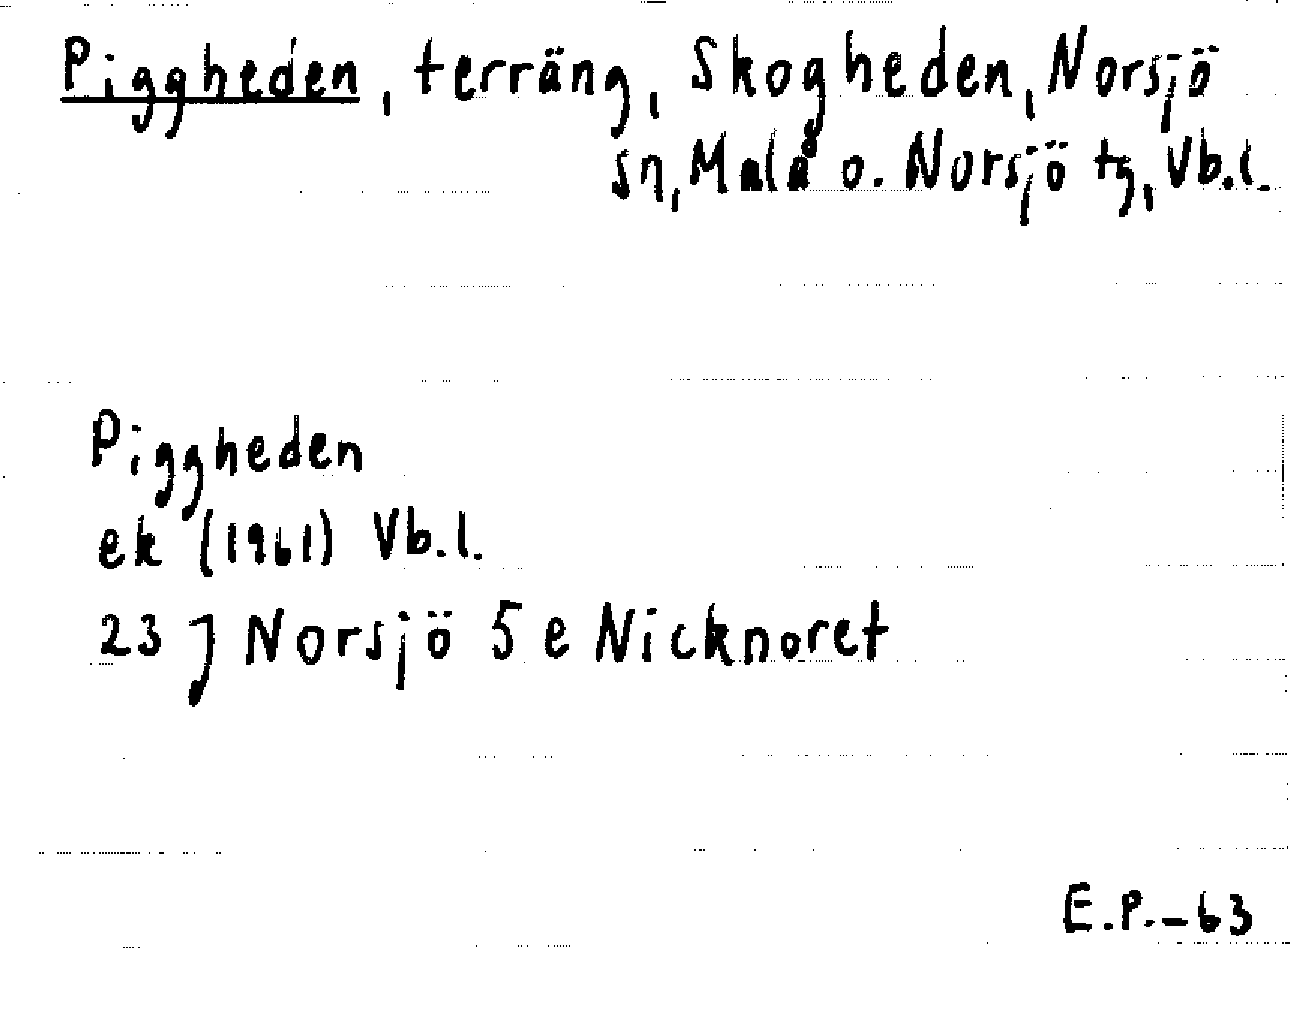 Piggheden, terräng, Skogheden, Norsjö
sn, Malå o. Norsjö tg, Vb.l.
Piggheden
ek (1961) Vb.l.
23 J Norsjö 5 e Nicknoret
E.P.-63